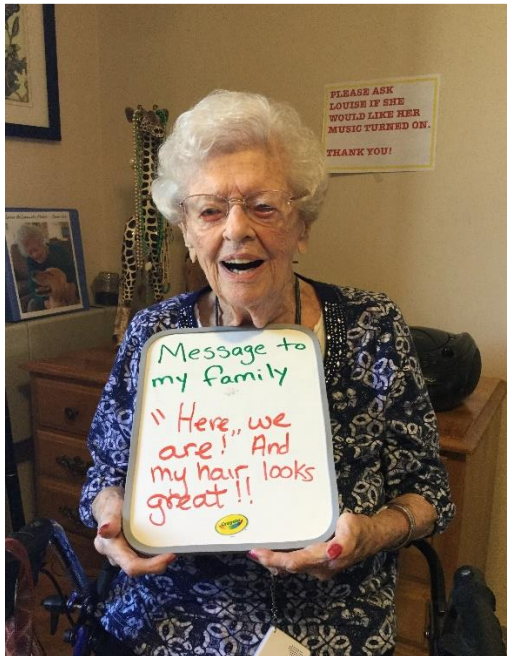 PLEASE ASK
LOUISE IF SHE
WOULD LIKE HER
MUSIC TURNED ON.
THANK YOU!
Message to
my family
"Here, we
are!" And
my hair looks
great!!
Crayola